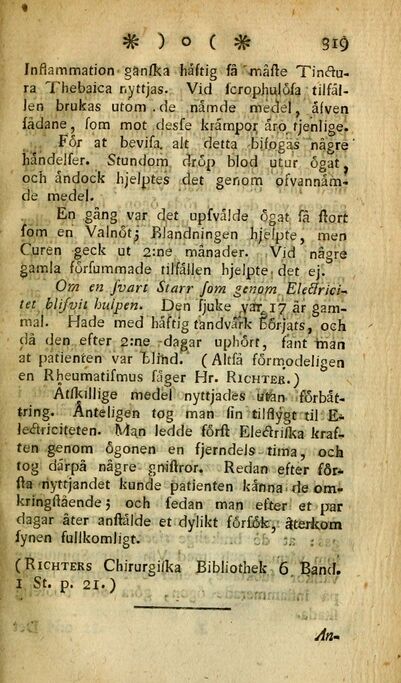 * ) o ( * 319
Inflammation ganſka håſtig få måſte Tinctu-
ra Thebaica nyttjas. Vid ſcrophulöſa tilfäl-
len brukas utom de nåmde medel, åfven
ſådane, ſom mot desſe krämpor åro tjenlige.
För at beviſa alt detta bifogas någre
håndelſer. Stundom dröp blod utur ögat,
och åndock hjelptes det genom ofvannäm-
de medel.
En gång var det upſvålde ögat ſå ſtort
ſom en Valnöt; Blandningen hjelpte, men
Curen geck ut 2:ne månader. Vid några
gamla förſummade tilfållen hjelpte det ej.
Om en ſvart Starr ſom genom Electrici-
tet bliſvit hulpen. Den ſjuke var 17 år gam-
mal. Hade med håftig tandvårk börjats, och
då den efter 2:ne dagar uphört, fant man
at patienten var blind. (Altſå förmodeligen
en Rheumatiſmus ſåger Hr. RICHTER.)
Åtſkillige medel nyttjades utan förbåt-
tring. Änteligen tog man ſin tilflygt til E-
lectriciteten. Man ledde förſt Electriſka kraf-
ten genom ögonen en fjerndels tima, och
tog dårpå någre gniſtror. Redan efter för-
ſta nyttjandet kunde patienten kånna de om-
kringſtående; och ſedan man efter et par
dagar åter anſtålde et dylikt förſök, återkom
ſynen fullkomligt.
(RICHTERS Chirurgiſka Bibliothek 6 Band.
1 St. p. 21.)
An-